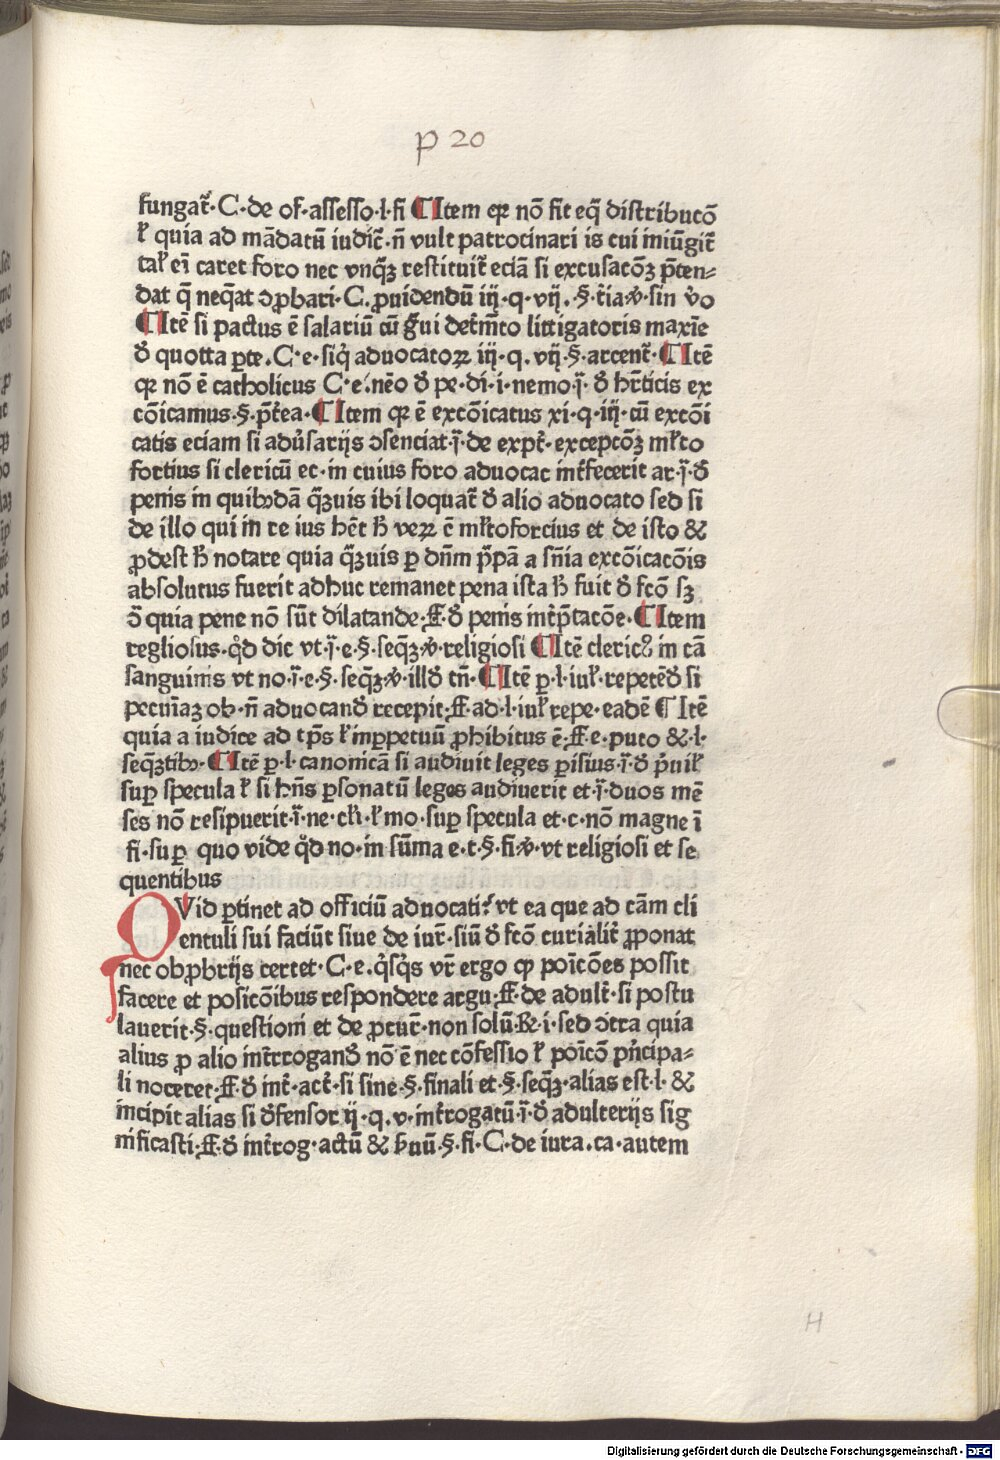 p 20
fungat᷑·C·de of·assesso·l·fi ¶Item qꝛ nō fit eq̄ distributō
ł quia ad mādatū iudic᷑·n̄ vult patrocinari is cui iniūgit᷑
tał ei̅ caret foro nec vnq̄ꝫ restituit᷑ eciā si excusacōꝫ p̄ten⸗
dat q̄ neq̄at ꝯꝓbari·C·ꝓuidendū iij·q·vij·§·t᷑ia·ꝟ·sin v̓o
¶Itē si pactus ē salariū cū det᷑m̄to littigatoris maxīe
ꝺ̄ quotta ꝑte·C·e·siq̓ aduocatoꝝ iij·q·vij·§·arcent᷑·¶Itē
qꝛ nō ē catholicus C·e·nēo ꝺ̄ pe·di·i·nemo·ī·ꝺ̄ hr̄ticis ex
cōicamus·§·p̄t᷑ea·¶Item qꝛ ē excōicatus xi·q·iij·cū excōi
catis eciam si adu̓sarijs ꝯsenciat·ī·de expt᷑·excepcōꝫ mł̄to
fortius si clericū ec·in cuius foro aduocac int᷑fecerit ar·ī·ꝺ̄
penis in quibꝰdā q̄ꝫuis ibi loquat᷑ ꝺ̄ alio aduocato sed si
de illo qui in re ius hēt h̄ veꝝ ē mł̄toforcius et de isto &
ꝓdest h̄ notare quia q̄ꝫuis ꝑ dn̄m p̄pā a sn̄ia excōicacōis
absolutus fuerit adhuc remanet pena ista h̄ fuit ꝺ̄ fcō sꝫ
ꝯ̄ quia pene nō sūt dilatande·ff·ꝺ̄ penis int᷑p̄tacōe·¶Item
regliosus·q̊d dic vt·ī·e·§·seq̄ꝫ·ꝟ·religiosi ¶Itē clericꝰ in cā
sanguinis vt no·ī·e·§·seq̄ꝫ·ꝟ·illꝺ̄ tn̄·¶Itē ꝑ·l·iuł·repetēꝺ̄ si
pecuniaꝫ ob·n̄ aduocanꝺ̄ recepit·ff·ad·l·iuł repe·eadē ¶Itē
quia a iudice ad tp̄s ł inꝑpetuū ꝓhibitus ē·ff·e·puto &·l·
seq̄ꝫtibꝰ·¶Itē ꝑ·l·canonicā si audiuit leges ꝑisius·ī·ꝺ̄ p̄uił
suꝑ specula ł si hn̄s ꝑsonatū leges audiuerit et·ī·duos mē
ses nō resipuerit·ī·ne·cł̄i·ł mo·suꝑ specula et·c·nō magne ī
fi·suꝑ quo vide q̊d no·in sūma e·t·§·fi·ꝟ·vt religiosi et se
quentibus
QVid ꝑtinet ad officiū aduocati? vt ea que ad cām cli
entuli sui faciūt siue de iur᷑·siū ꝺ̄ fcō curialit᷑ ꝓponat
nec obꝓbrijs certet·C·e·q̓sq̓s vr̄ ergo qꝫ poi̅cōes possit
facere et posicōibus respondere argu·ff·de adult᷑·si postu
lauerit·§·questioni et de ꝓcur᷑·non solū·R·i·sed ꝯtra quia
alius ꝓ alio int᷑roganꝺ̄ nō ē nec cōfessio ł poi̅cō pn̓cipa⸗
li noceret·ff·ꝺ̄ int᷑·act᷑·si sine·§·finali et·§·seq̄ꝫ·alias est·l·&
incipit alias si ꝺ̄fensor ij·q·v·int᷑rogatū·ī·ꝺ̄ adulterijs sig
nificasti·ff·ꝺ̄ int᷑rog·actū & bn̄ū·§·fi·C·de iura·ca·autem
H
Digitalisierung gefördert durch die Deutsche Forschungsgemeinschaft - DFG